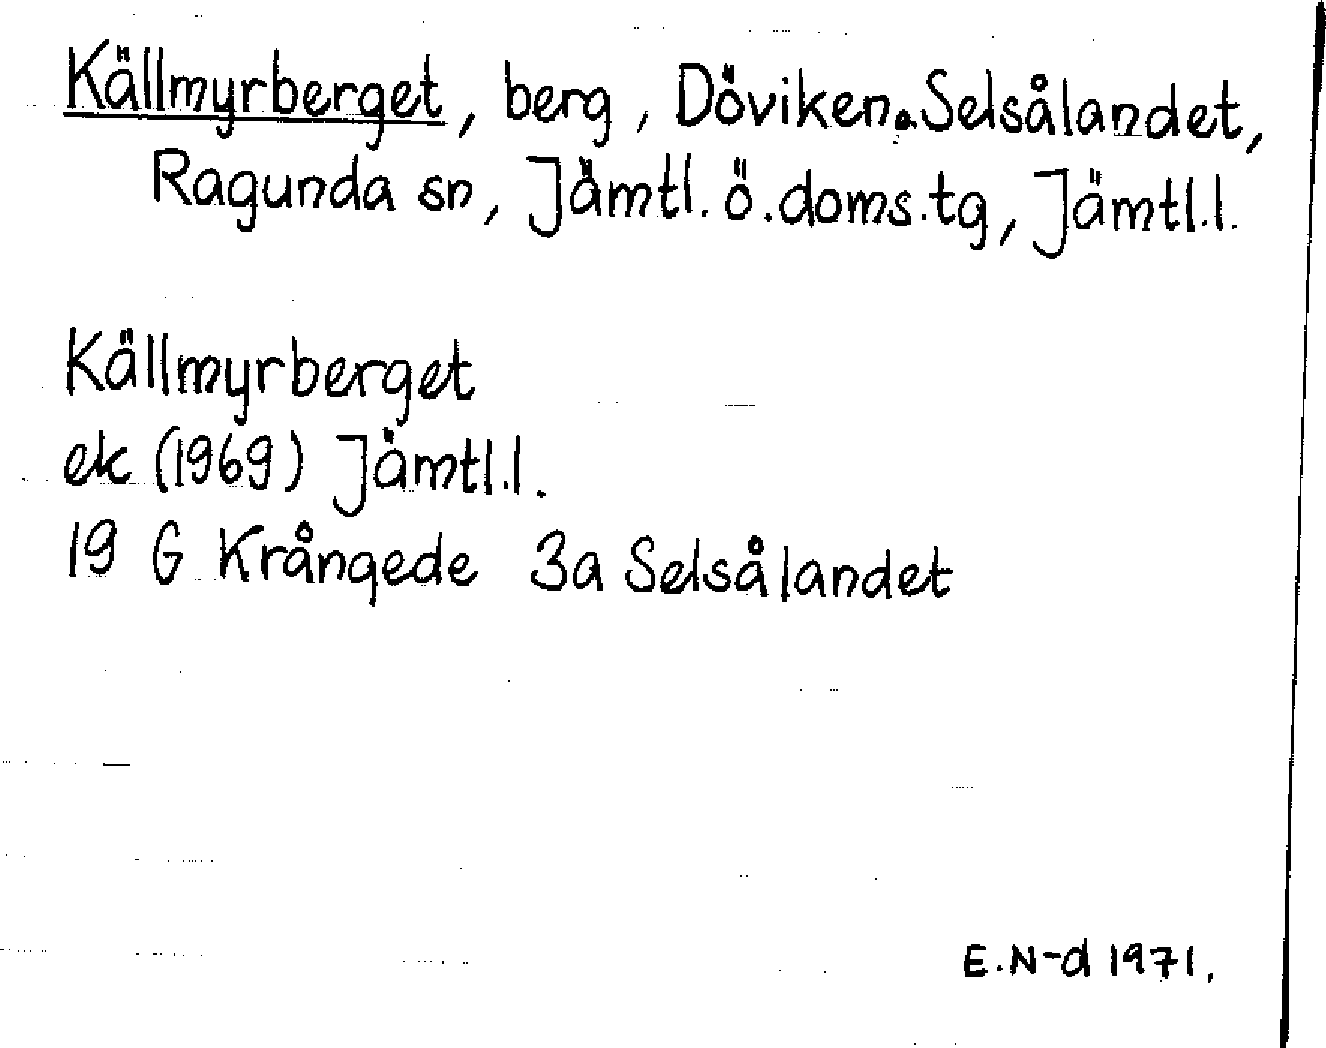 Källmyrberget, berg, Döviken. Selsålandet,
Ragunda sn, Jämtl. ö. doms. tg, Jämtl. l.
Källmyrberget
ek (1969) Jämtl. l.
19 G Krångede 3a Selsålandet
E. N-d 1971.